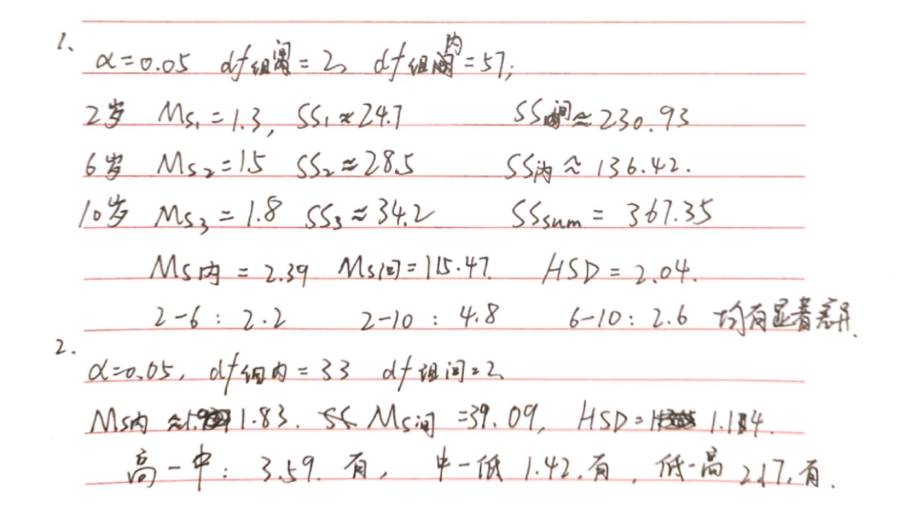 1.
α=0.05 df组间=2 df组内=57;
2岁 MS₁=1.3, SS₁≈24.7 SS间≈230.93
6岁 MS₂=1.5 SS₂≈28.5 SS内≈136.42.
10岁 MS₃=1.8 SS₃≈34.2 SSsum=367.35
MS内=2.39 MS间=115.47 HSD=2.04.
2-6:2.2 2-10:4.8 6-10:2.6 均有显著差异.
2.
α=0.05, df组内=33 df组间=2
MS内≈1.83. MS间=39.09, HSD=1.134.
高-中:3.59.有, 中-低 1.42.有, 低-高 2.17.有.